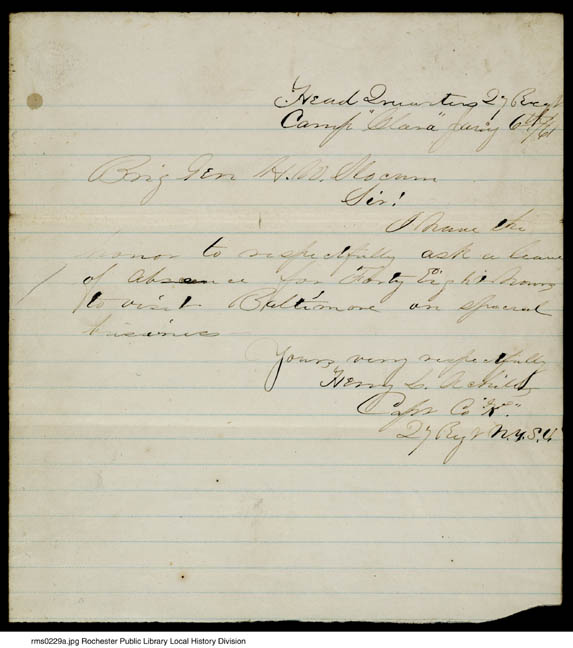 Head Quarters 27 Regt
Camp "Clara" Jan'y 6th/61
Brig Gen H. W. Slocum
Sir!
I have the
honor to respectfully ask a leave
of absence for Forty Eight hours
to visit Baltimore on special
business
Yours very respectfully
Henry C. Achilles
Capt Co "K"
27 Regt N.Y.S.V.
rms0229a.jpg Rochester Public Library Local History Division